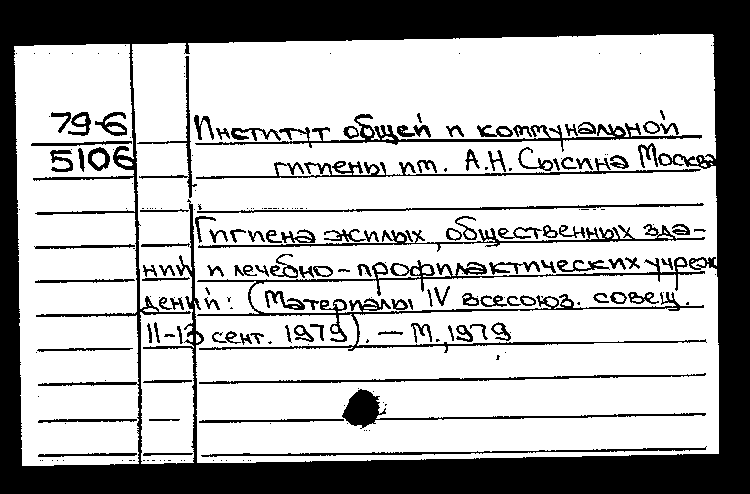 79-6
5106
Институт общей и коммунальной
гигиены им. А.Н. Сысина Москва
Гигиена жилых, общественных зда-
ний и лечебно-профилактических учреж
дений: (Материалы IV всесоюз. совещ.
11-13 сент. 1979). — М., 1979